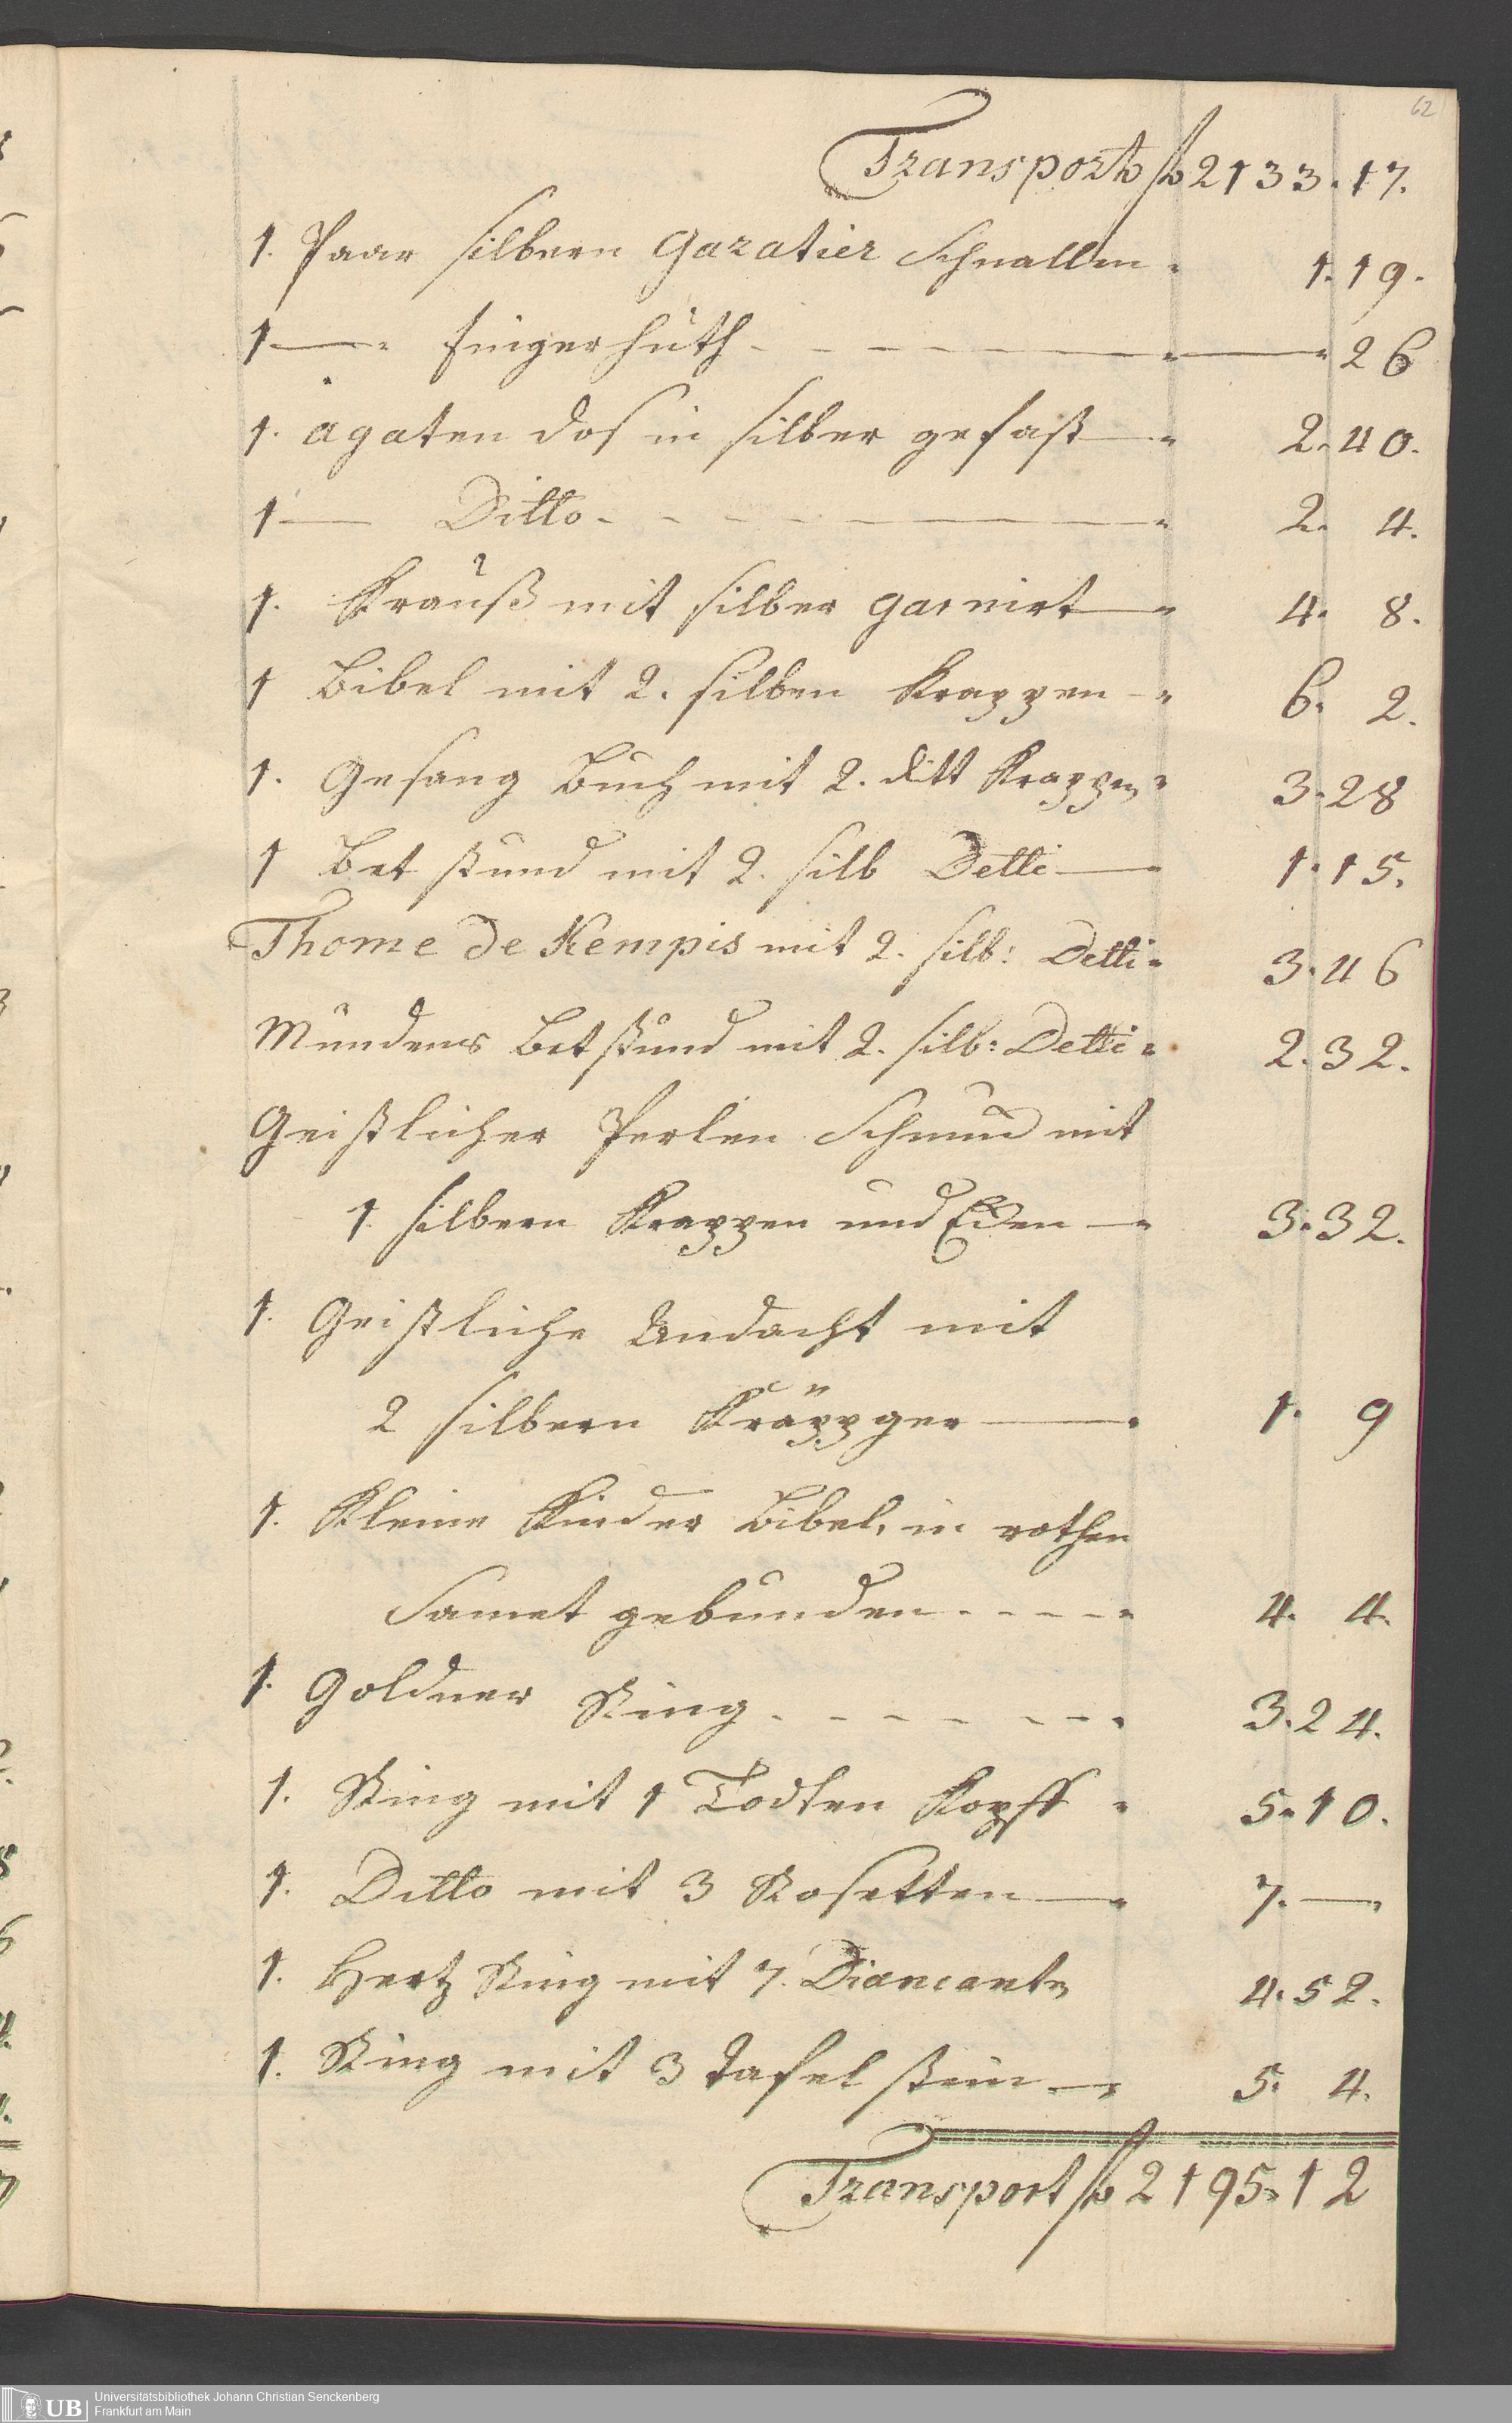 62
Transport f 2133. 17.
1. Paar silbern Garatier Schnallen. 1. 19.
1 — fingerhuth 26
1. agaten dos in silber gefast 2. 40.
1 — Ditto 2. 4.
1. Krauß mit silber garnirt 4. 8.
1 Bibel mit 2. silbern Krappen 6. 2.
1. Gesang Buch mit 2. ditt Krappen 3. 28
1 Bet stund mit 2. silb Detti 1. 15.
Thome de Kempis mit 2. silb: Detti 3. 46
Mündens Betstund mit 2. silb: Detti 2. 32.
Geistlicher Perlen Schmuck mit
1. silbern Krappen und Ecken 3. 32.
1. Geistliche Andacht mit
2 silbern Kräppger 1. 9
1. Kleine Kinder Bibel, in rothen
Samet gebunden 4. 4.
1. Goldner Ring 3. 24.
1. Ring mit 1 Todten Kopff 5. 10.
1. Ditto mit 3 Rosetten 7. —
1. Hertz Ring mit 7. Diamanten 4. 52.
1. Ring mit 3 Tafel stein 5. 4.
Transport f 2195. 12
UB Universitätsbibliothek Johann Christian Senckenberg
Frankfurt am Main